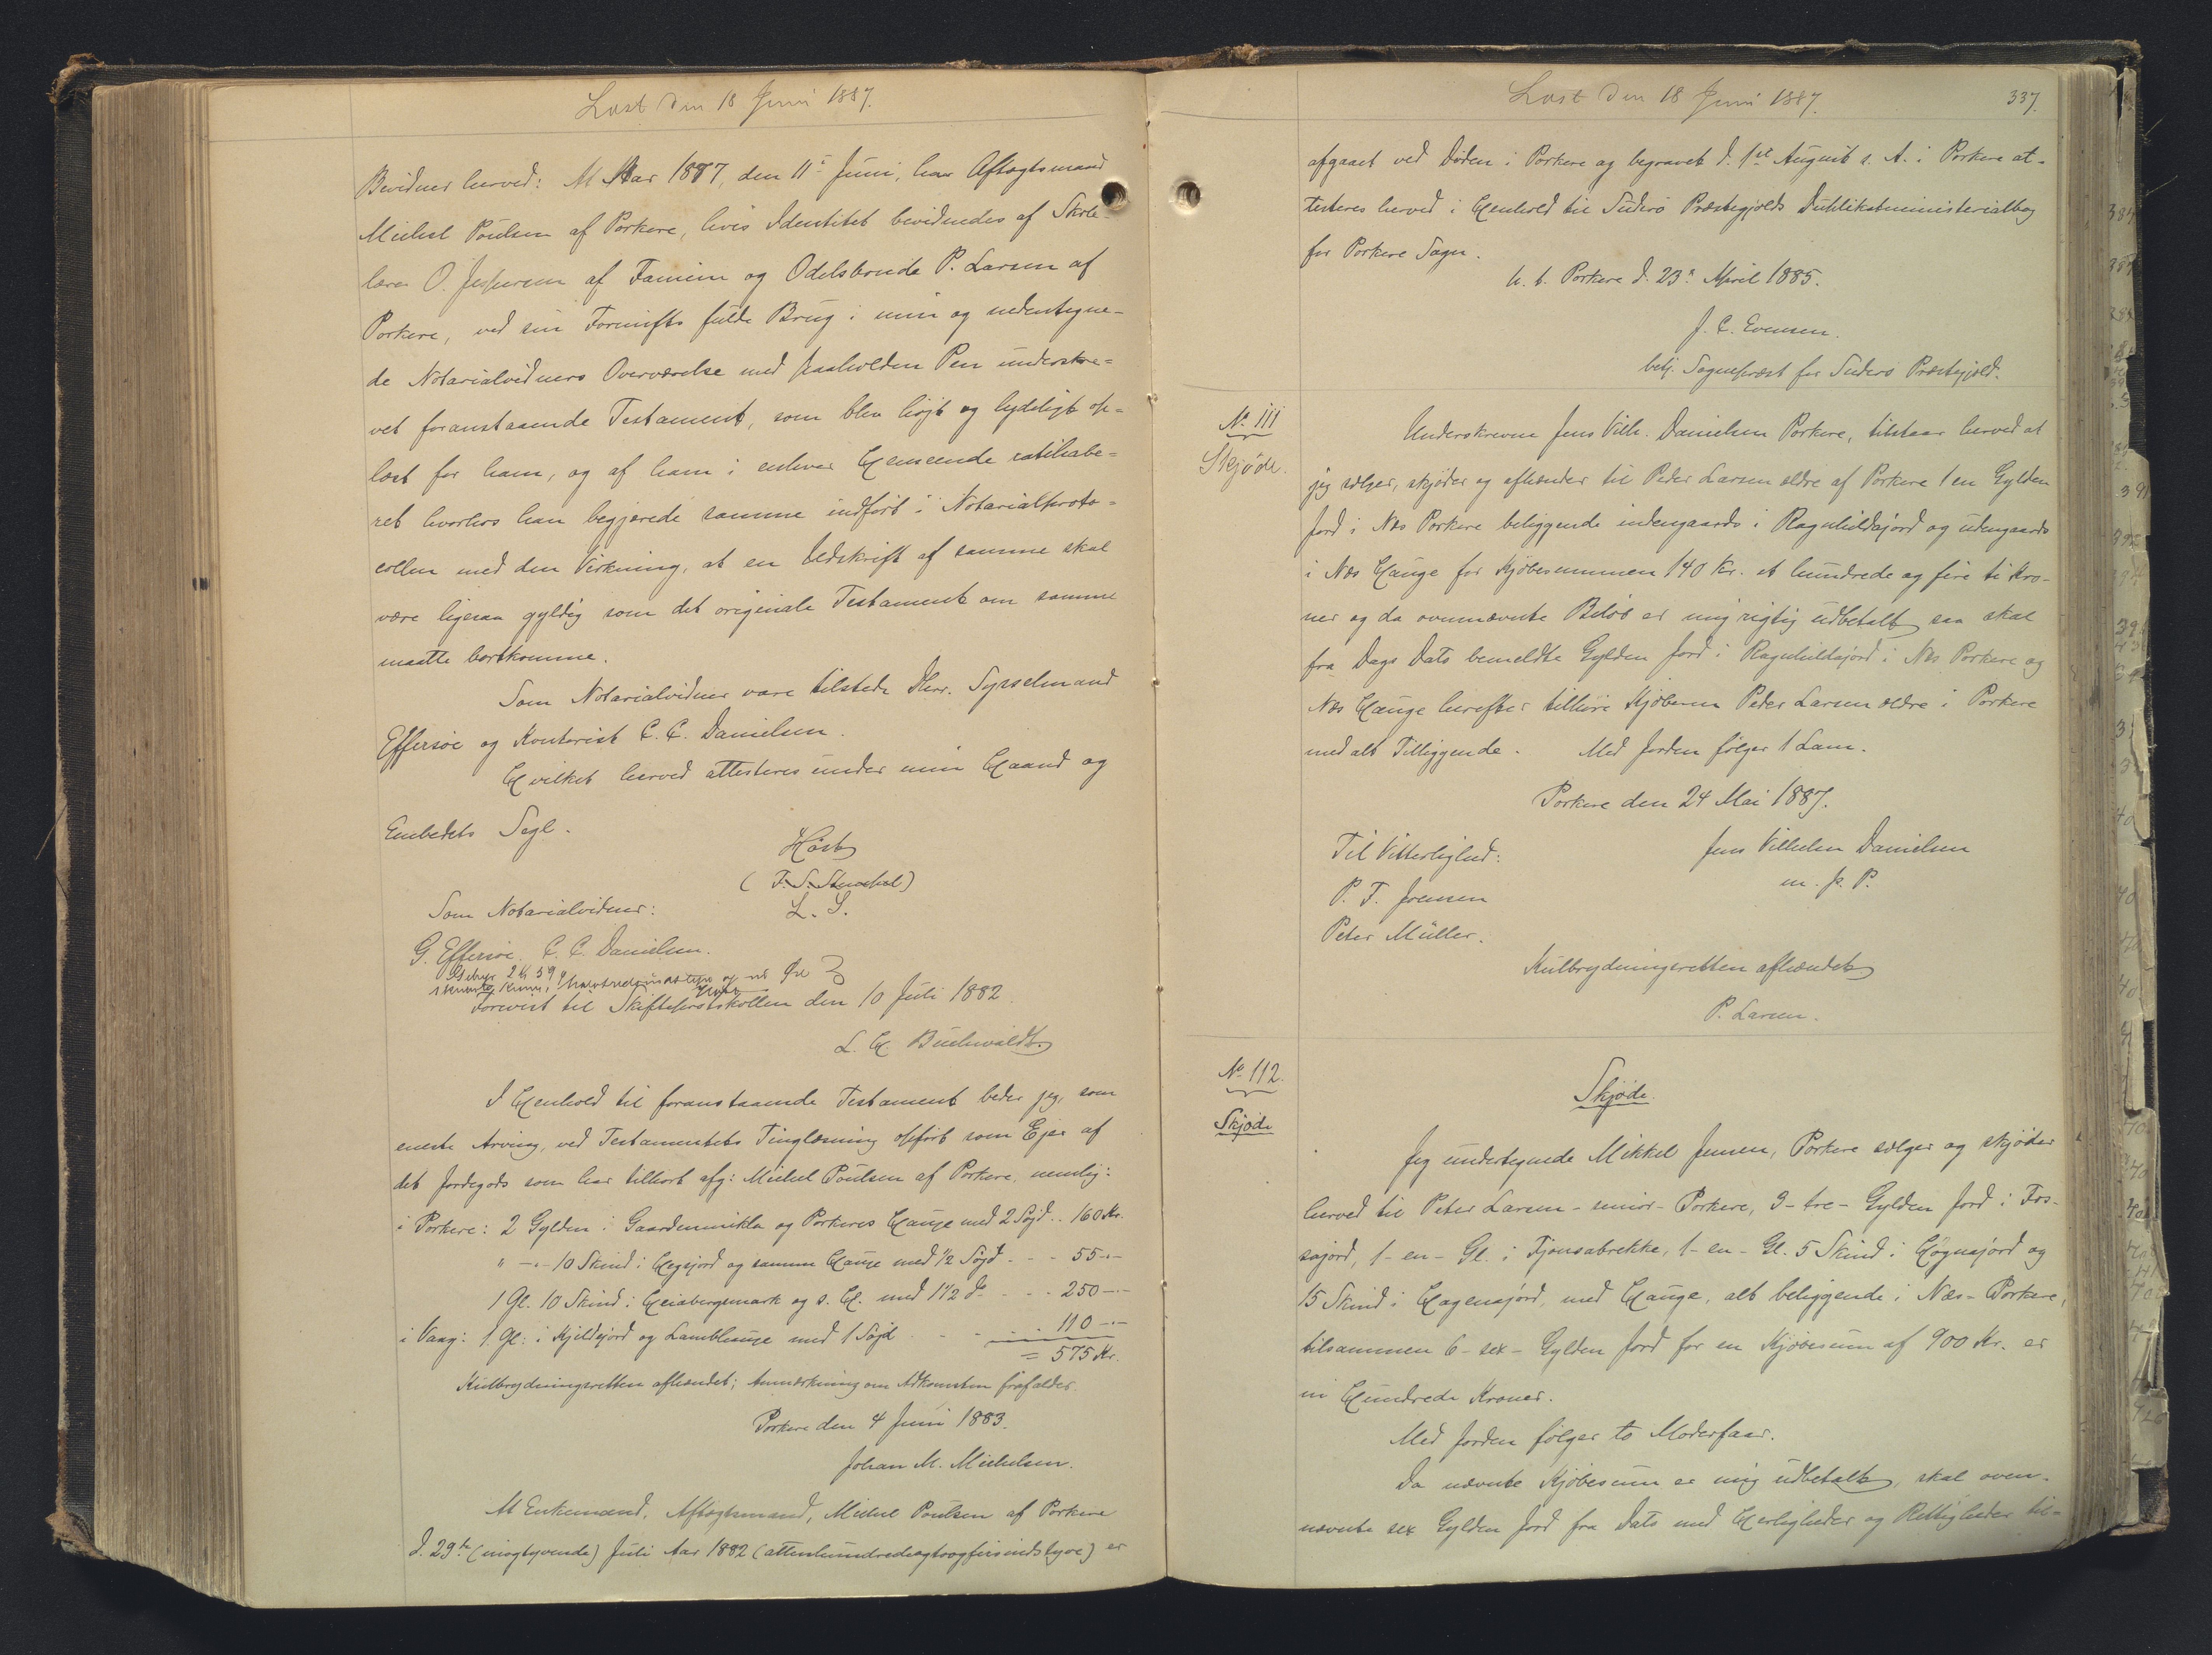 Læst den 18 Juni 1887.
Bevidner herved: At Aar 1877, den 11te Juni, har Aftægtsmand
Michel Poulsen af Porkere, hvis Identitet bevidnedes af Skole-
lærer O. Jespersen af Famien og Odelsbonde P. Larsen af
Porkere, ved sin Fornufts fulde Brug i min og undertegne-
de Notarialvidners Overværelse med paaholden Pen underskre-
vet foranstaaende Testament, som blev højt og lydeligt op-
læst for ham, og af ham i enhver Henseende ratihabe-
ret hvorhos han begjærede samme indført i Notarialproto-
collen med den Virkning, at en Udskrift af samme skal
være ligesaa gyldig som det originale Testament om samme
maatte bortkomme.
Som Notarialvidner vare tilstede Hrr. Sysselmand
Effersøe og Kontorist C. C. Danielsen.
Hvilket herved attesteres under min Haand og
Embedets Segl.
Høst
L. S.
Som Notarialvidner:
G. Effersøe. C. C. Danielsen.
Gebyr 2 Kr 59 Øre
Forevist til Skifteprotokollen den 10 Juli 1882.
L. H. Buchwaldt.
I Henhold til foranstaaende Testament beder jeg, som
eneste Arving, ved Testamentets Tinglæsning opført som Ejer af
det Jordegods som har tilhørt afg: Michel Poulsen af Porkere, nemlig:
i Porkere: 2 Gylden i Gaardemnikla og Porkeres Hauge med 2 Søjd .. 160 Kr.
" -"- 10 Skind i Hegejord og samme Hauge med 1/2 Søjd - - 55 -"-
1 Gl. 10 Skind i Heiabergemark og s. H. med 1 1/2 do - - - 250 -"-
i Vaag: 1. Gl. i Kjeldejord og Lambhauge med 1 Søjd - - - 110 -"-
= 575 Kr.
Kulbrydningsretten afhændet; Anmærkning om Adkomsten frafalder.
Porkere den 4 Juni 1883.
Johan M. Michelsen.
At Enkemand, Aftægtsmand, Michel Poulsen af Porkere
d. 29de (niogtyvende) Juli Aar 1882 (attenhundredeogtoogfirsindstyve) er
Læst den 18 Juni 1887.
337.
afgaaet ved Døden i Porkere og begravet d. 1ste August s. A. i Porkere at-
testeres herved i Henhold til Suderø Præstegjelds Duplikatministerialbog
for Porkere Sogn.
p. t. Porkere d. 23de April 1885.
J. C. Evensen.
betj. Sognepræst for Suderø Præstegjeld.
No 111
Skjøde.
Underskrevne Jens Vilh. Danielsen Porkere, tilstaar herved at
jeg sælger, skjøder og afhænder til Peder Larsen ældre af Porkere 1 en Gylden
Jord i Næs Porkere beliggende indengaards i Ragnhildajord og udengaards
i Næs Hauge for Kjøbesummen 140 Kr. et hundrede og fire ti Kro-
ner og da ovennævnte Beløb er mig rigtig udbetalt, saa skal
fra Dags Dato bemeldte Gylden Jord i Ragnhildajord i Næs Porkere og
Næs Hauge herefter tilhøre Kjøberen Peder Larsen ældre i Porkere
med alt Tilliggende. Med Jorden følger 1 Lam.
Porkere den 24 Mai 1887.
Til Vitterlighed:
Jens Vilhelm Danielsen
m. p. P.
P. F. Joensen
Peter Müller.
Kulbrydningsretten afhændet
P. Larsen.
No 112.
Skjøde
Skjøde.
Jeg undertegnede Mikkel Jensen, Porkere sælger og skjøder
herved til Peter Larsen - senior - Porkere, 3 - tre - Gylden Jord i Fos-
sajord, 1 - en - Gl. i Tjonsabrekke, 1 - en - Gl. 5 Skind i Høgnajord og
15 Skind i Hagenajord, med Hauge, alt beliggende i Næs - Porkere,
tilsammen 6 - sex - Gylden Jord for en Kjøbesum af 900 Kr. er
ni Hundrede Kroner.
Med Jorden følger to Moderfaar.
Da nævnte Kjøbesum er mig udbetalt, skal oven-
nævnte sex Gylden Jord fra Dato med Herligheder og Rettigheder til-